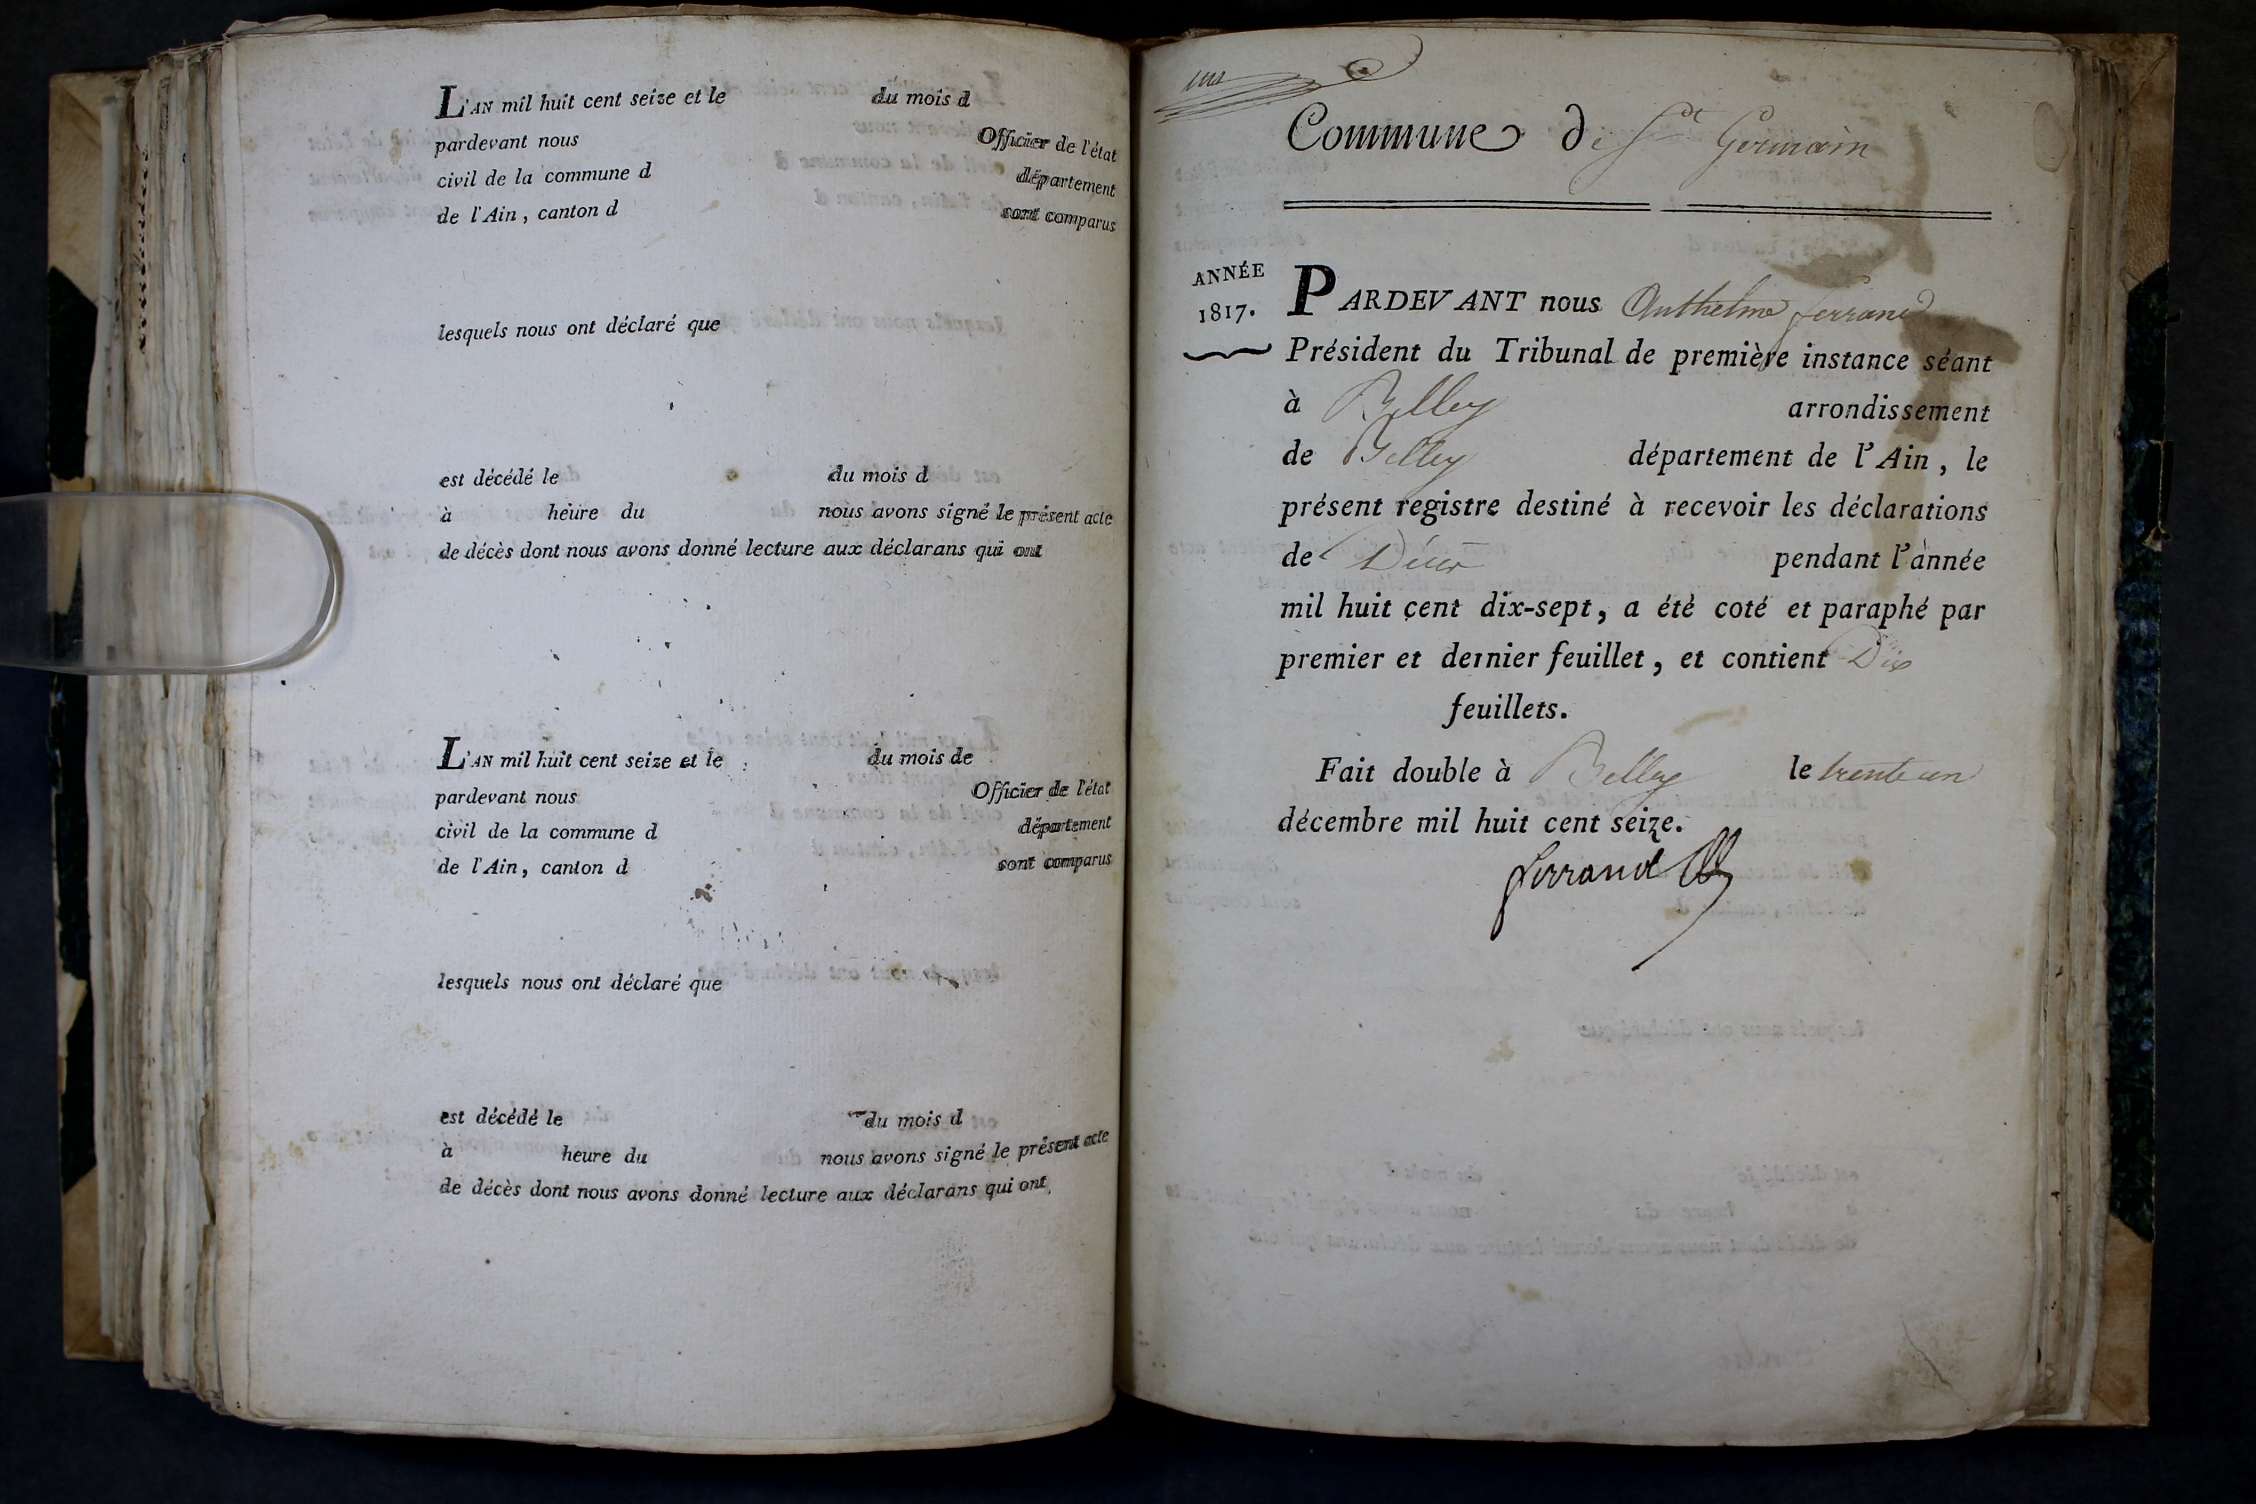 L'AN mil huit cent seize et le du mois d
pardevant nous Officier de l'état
civil de la commune d département
de l'Ain, canton d sont comparus
lesquels nous ont déclaré que
est décédé le du mois d
à heure du nous avons signé le présent acte
de décès dont nous avons donné lecture aux déclarans qui ont
L'AN mil huit cent seize et le du mois de
pardevant nous Officier de l'état
civil de la commune d département
de l'Ain, canton d sont comparus
lesquels nous ont déclaré que
est décédé le du mois d
à heure du nous avons signé le présent acte
de décès dont nous avons donné lecture aux déclarans qui ont
Commune de St Germain
ANNÉE
1817.
PARDEVANT nous Anthelme ferrand
Président du Tribunal de première instance séant
à Belley arrondissement
de Belley département de l'Ain, le
présent registre destiné à recevoir les déclarations
de Décès pendant l'année
mil huit cent dix-sept, a été coté et paraphé par
premier et dernier feuillet, et contient Dix
feuillets.
Fait double à Belley le trente un
décembre mil huit cent seize.
ferrand